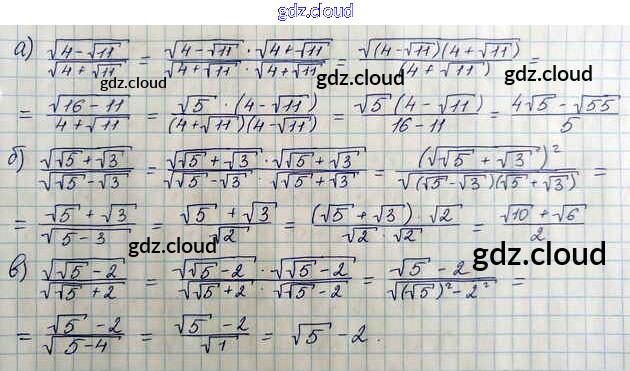 gdz.cloud
а) √(4-√11)/√(4+√11) = √(4-√11)·√(4+√11)/√(4+√11)·√(4+√11) = √((4-√11)(4+√11))/(4+√11) =
gdz.cloud gdz.cloud gdz.cloud
= √(16-11)/4+√11 = √5·(4-√11)/(4+√11)(4-√11) = √5(4-√11)/16-11 = 4√5-√55/5
б) √(√5+√3)/√(√5-√3) = √(√5+√3)·√(√5+√3)/√(√5-√3)·√(√5+√3) = (√(√5+√3))²/√((√5-√3)(√5+√3)) =
= √5+√3/√(5-3) = √5+√3/√2 = (√5+√3)·√2/√2·√2 = √10+√6/2
gdz.cloud gdz.cloud gdz.cloud
в) √(√5-2)/√(√5+2) = √(√5-2)·√(√5-2)/√(√5+2)·√(√5-2) = √5-2/√((√5)²-2²) =
= √5-2/√(5-4) = √5-2/√1 = √5-2.